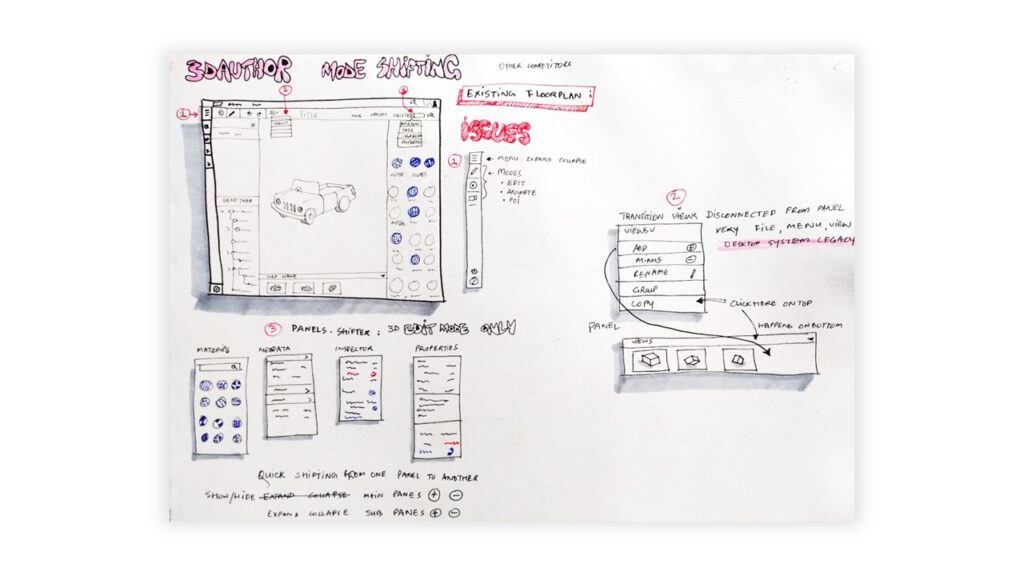 3DAUTHOR MODE SHIFTING
OTHER COMPETITORS
EXISTING FLOORPLAN :
ISSUES
1
2
3
TITLE
VIEWS
1
MENU EXPAND COLLAPSE
MODES
• EDIT
• ANIMATE
• POI
2
TRANSITION VIEWS DISCONNECTED FROM PANEL
VERY FILE, MENU, VIEW
DESKTOP SYSTEM LEGACY
VIEWS V
ADD
MINUS
RENAME
GROUP
COPY
CLICK HERE ON TOP
HAPPENS ON BOTTOM
PANEL
VIEWS
3 PANELS. SHIFTER : 3D EDIT MODE ONLY
METADATA
INSPECTOR
PROPERTIES
QUICK SHIFTING FROM ONE PANEL TO ANOTHER
SHOW/HIDE EXPAND COLLAPSE MAIN PANES + -
EXPAND COLLAPSE SUB PANES + -